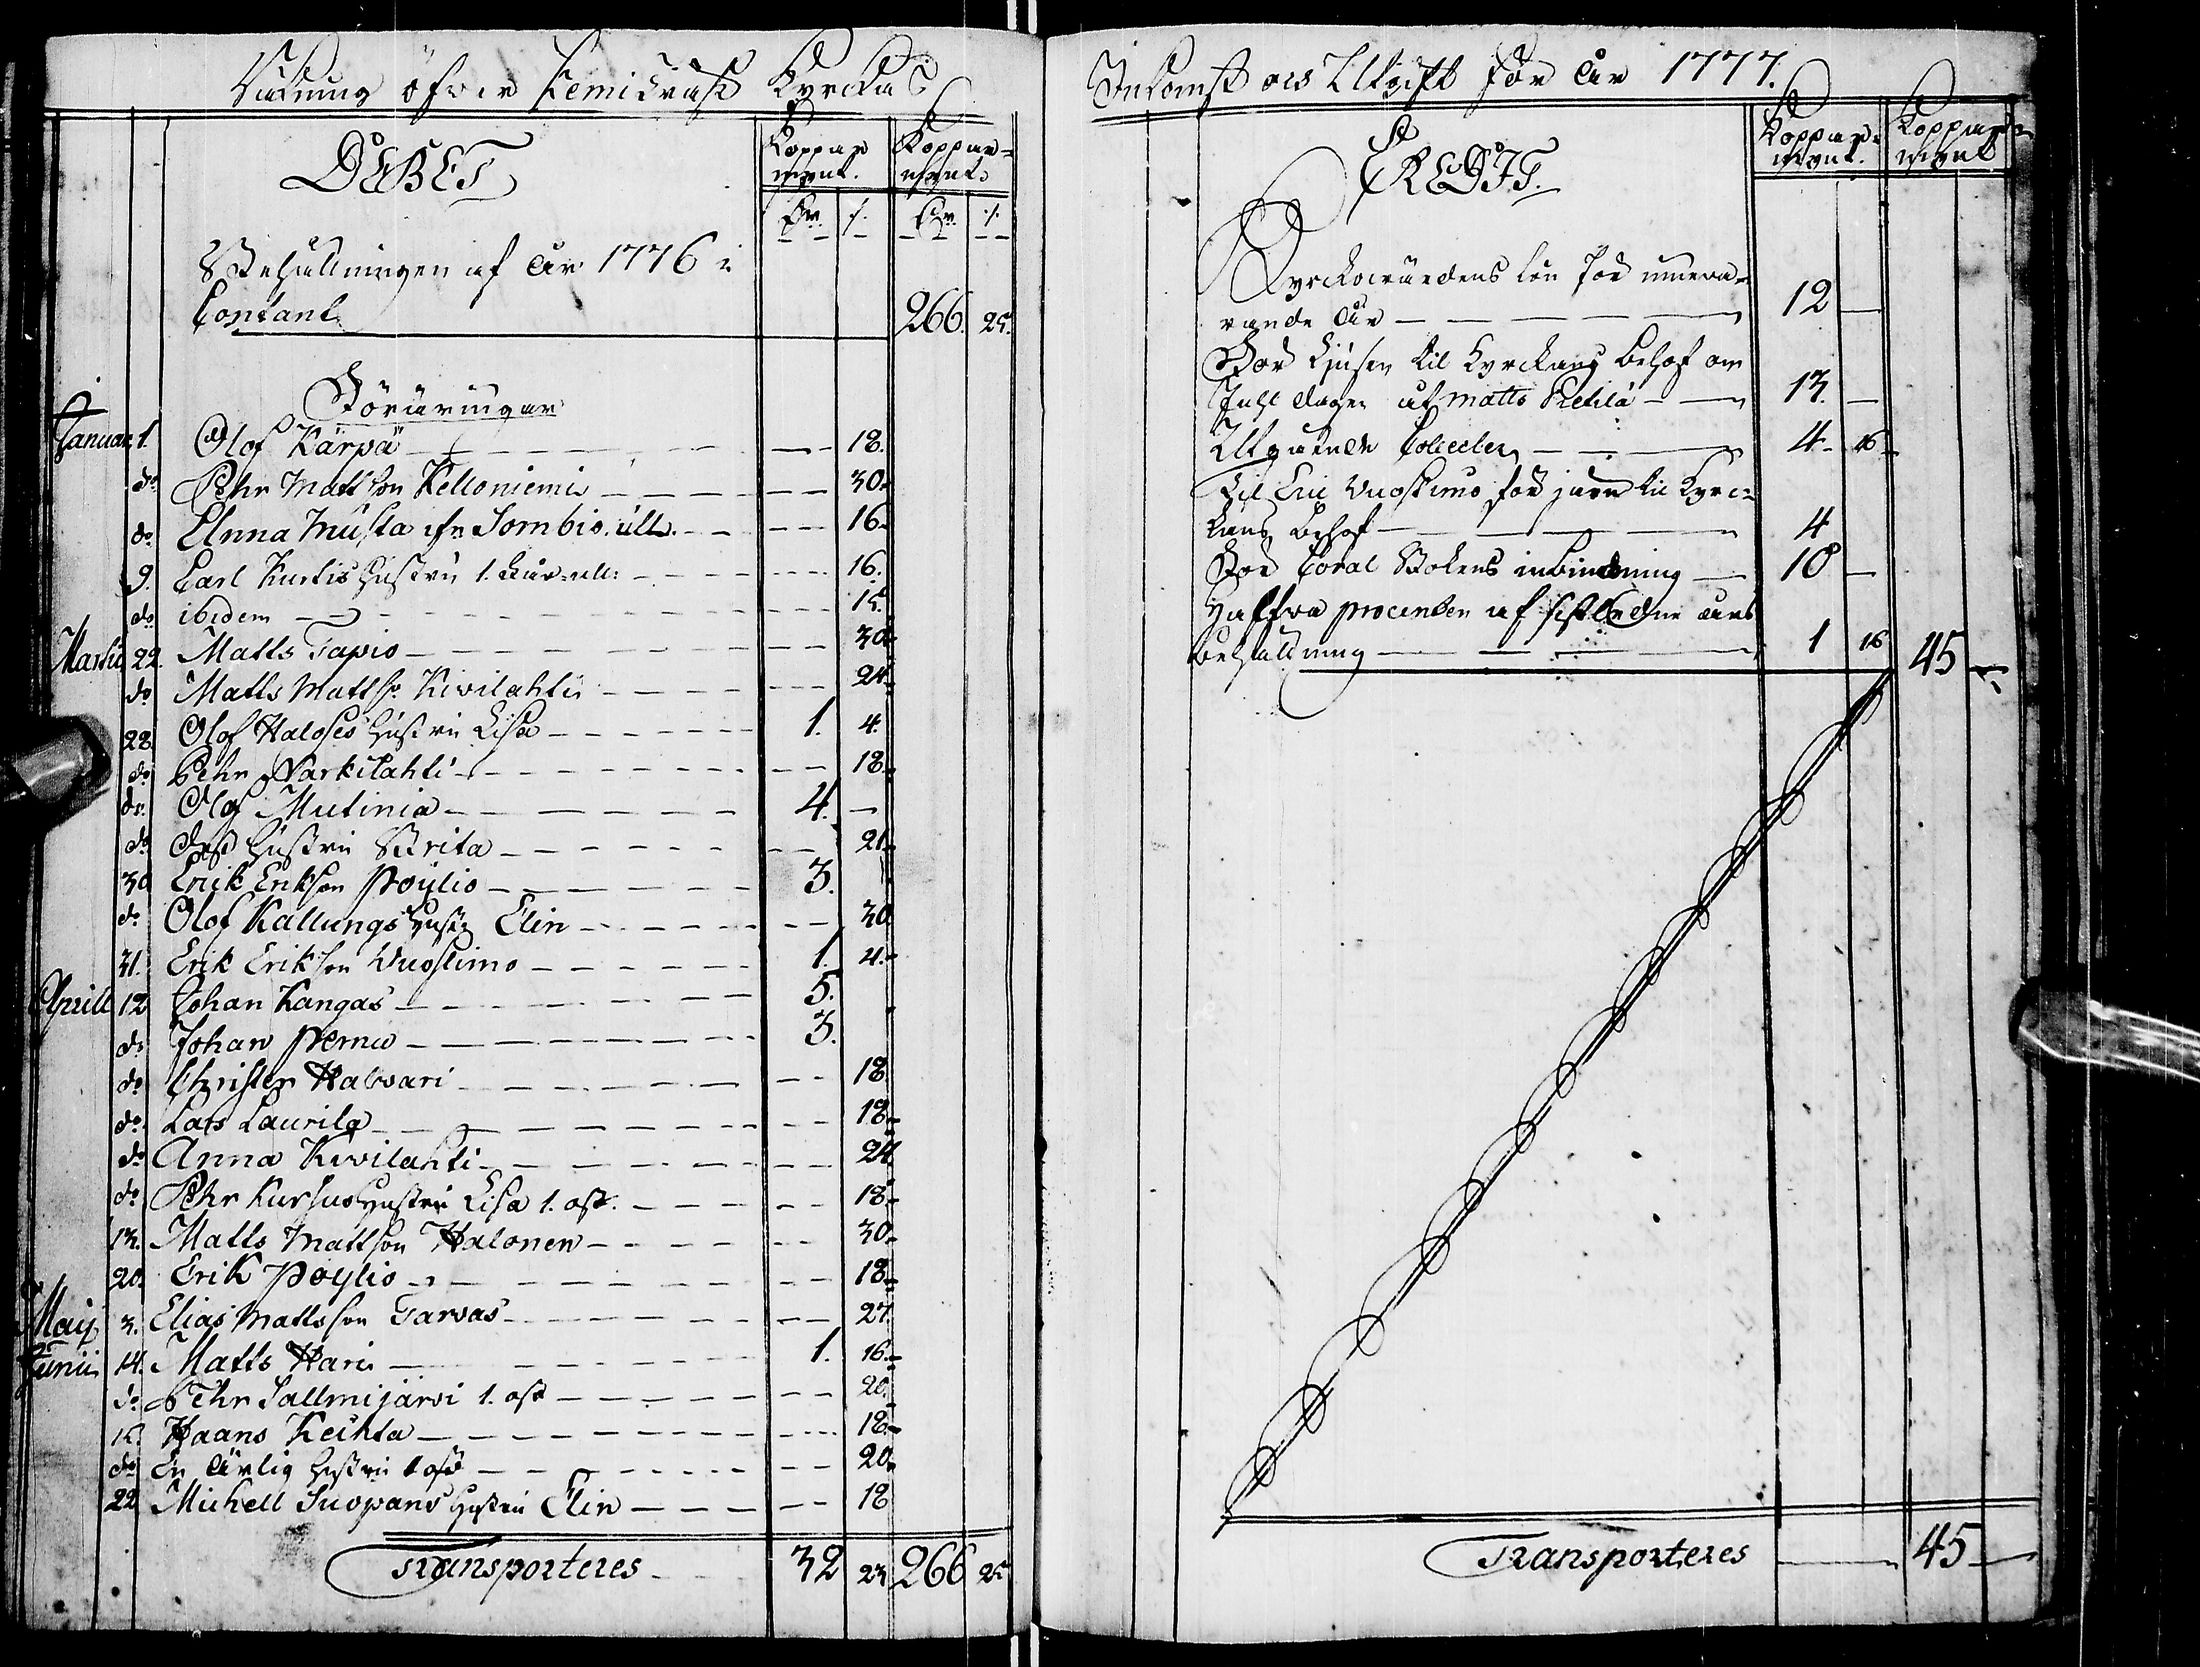 Räkning öfver Kemiträsk Kyrckas
DEBET
Koppar mynt.
Koppar= mynt.
Dr. /. Dr. /.
Behållningen af år 1776 i
Contant 266. 25.
Föräringar
Januar. 1. Olof Kärpä — 18.
do Pehr Mattson Kelloniemi — 30.
do Anna Musta ifr Sombio. — 16.
9. Carl Kurtis hustru 1. — 16.
do ibidem — 15.
Martii 22. Matts Tapio — 30.
do Matts Matts. Kivilahti — 24.
28. Olof Haloses hustru Lisa — 1. 4.
do Pehr Narkilahti — 18.
do Olof Mutinia — 4. —
do dess hustru Brita — 21.
30 Erik Erikson Pöyliö — 3.
do Olof Kallungs hustr Elin — 30
31. Erik Erikson Vuostimo — 1. 4.
Aprill 12 Johan Kangas — 5.
do Johan Pernu — 3.
do Christer Halvari — 18.
do Lars Laurila — 18.
do Anna Kivilahti — 24.
do Pehr Kursus hustru Lisa 1. ost. — 18.
13. Matts Mattson Halonen — 30.
20. Erik Pöyliö — 18.
Maij 3. Elias Mattsson Tarvas — 27.
Junii 14. Matts Hari — 1. 16.
do Pehr Sallmijärvi 1. ost — 20.
15. Haans Keihta — 18.
do En ärlig hustru 1 ost — 20.
22 Michell Suopans hustru Elin — 18
Transporteres 32 23 266 25
Inkomst och Utgift för år 1777.
CREDIT.
Koppar= mynt.
Koppar= mynt
Kyrckovärdens lön för innevarande
år — 12 —
För Ljusen til Kyrckans behof om
Juhl dagen af Matts Pekila — 13. —
Utgående Collecter — 4. 16.
Til Eric Vuostimo för järn til Kyrc=
kans behof — 4
För Coral Bokens inbindning — 10 —
Halfva procenten af sistledne åhrs
behållning — 1 16 45 —
Transporteres — 45 —